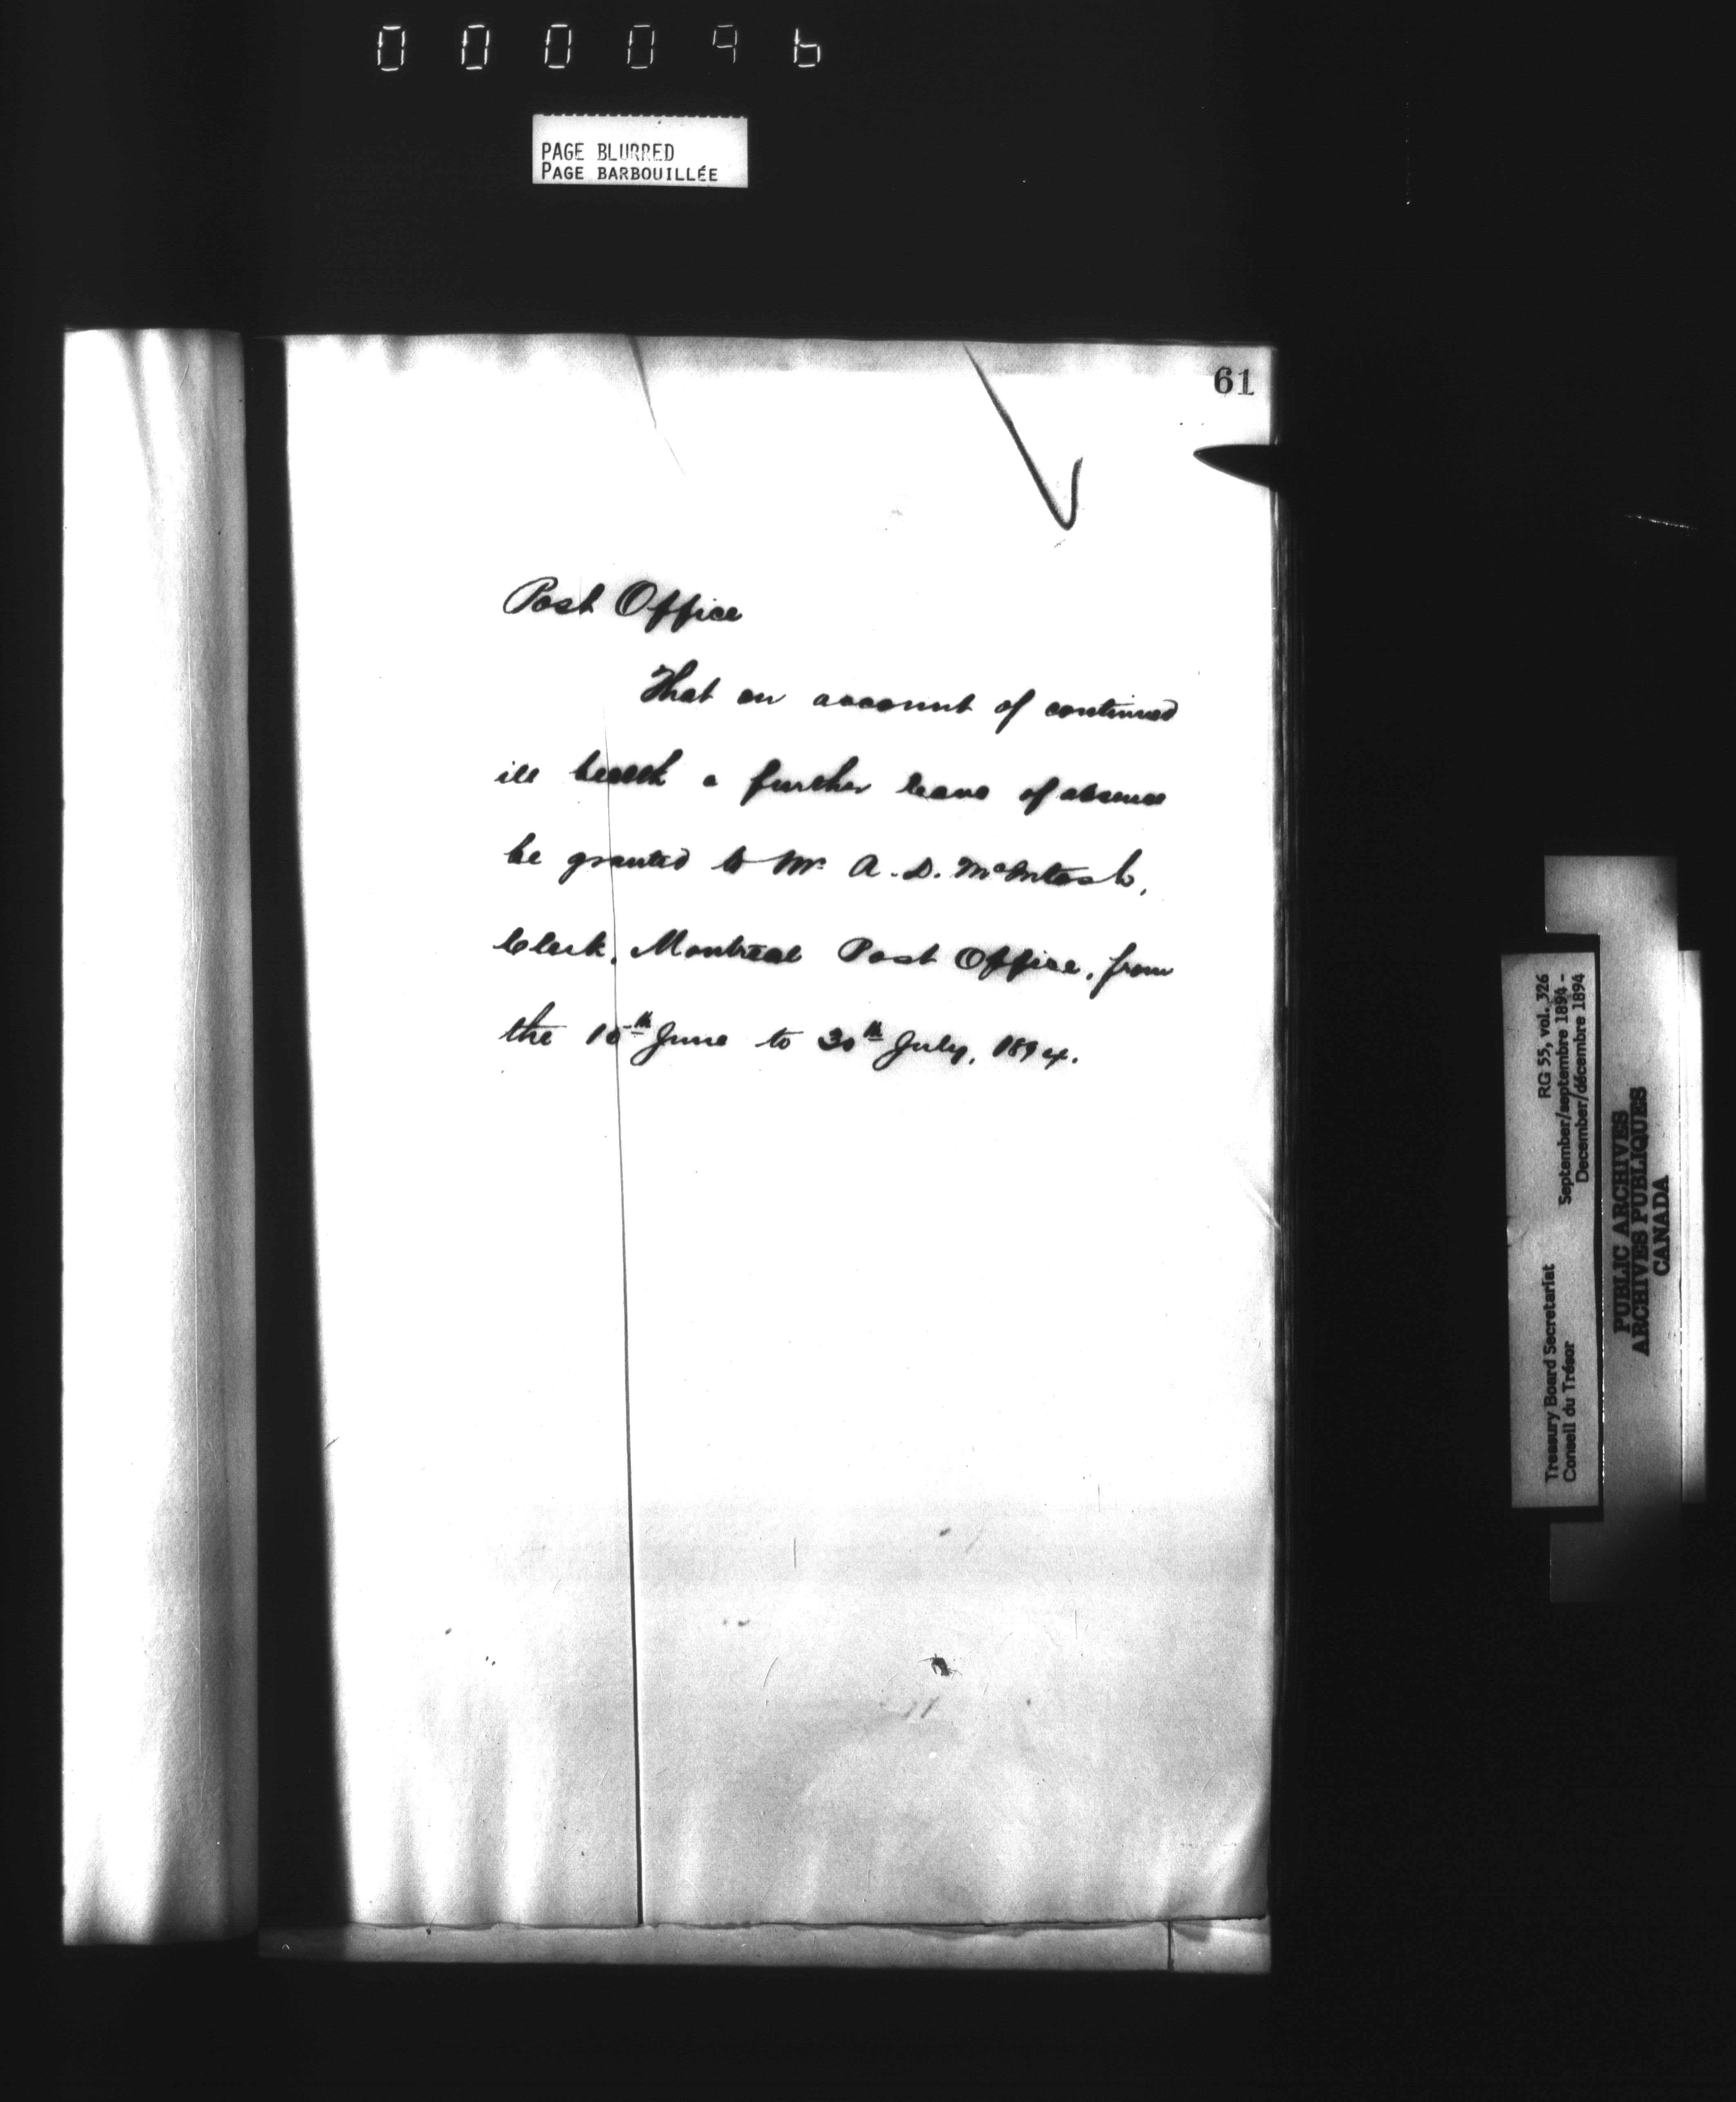 000096
PAGE BLURRED
PAGE BARBOUILLÉE
61
Post Office
That on account of continued
ill health a further leave of absence
be granted to Mr. A. D. McIntosh,
Clerk, Montreal Post Office, from
the th June to 30th July, 1894.
RG 55, vol. 326
September/septembre 1894 -
December/décembre 1894
Treasury Board Secretariat
Conseil du Trésor
PUBLIC ARCHIVES
ARCHIVES PUBLIQUES
CANADA